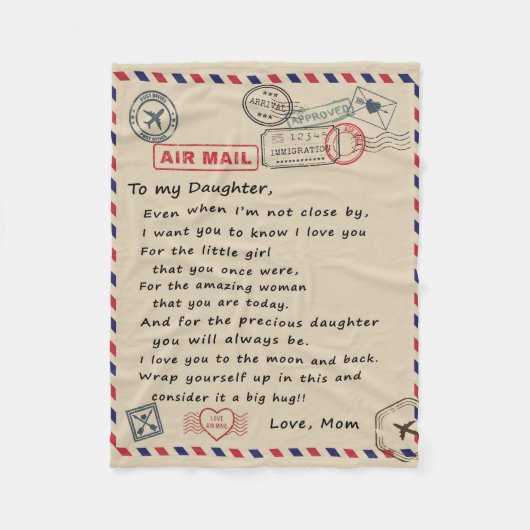 POST OFFICE
POST OFFICE
ARRIVAL
APPROVED
12345
IMMIGRATION
AIR MAIL
To my Daughter,
Even when I'm not close by,
I want you to know I love you
For the little girl
that you once were,
For the amazing woman
that you are today.
And for the precious daughter
you will always be.
I love you to the moon and back.
Wrap yourself up in this and
consider it a big hug!!
Love, Mom
LOVE
AIR MAIL